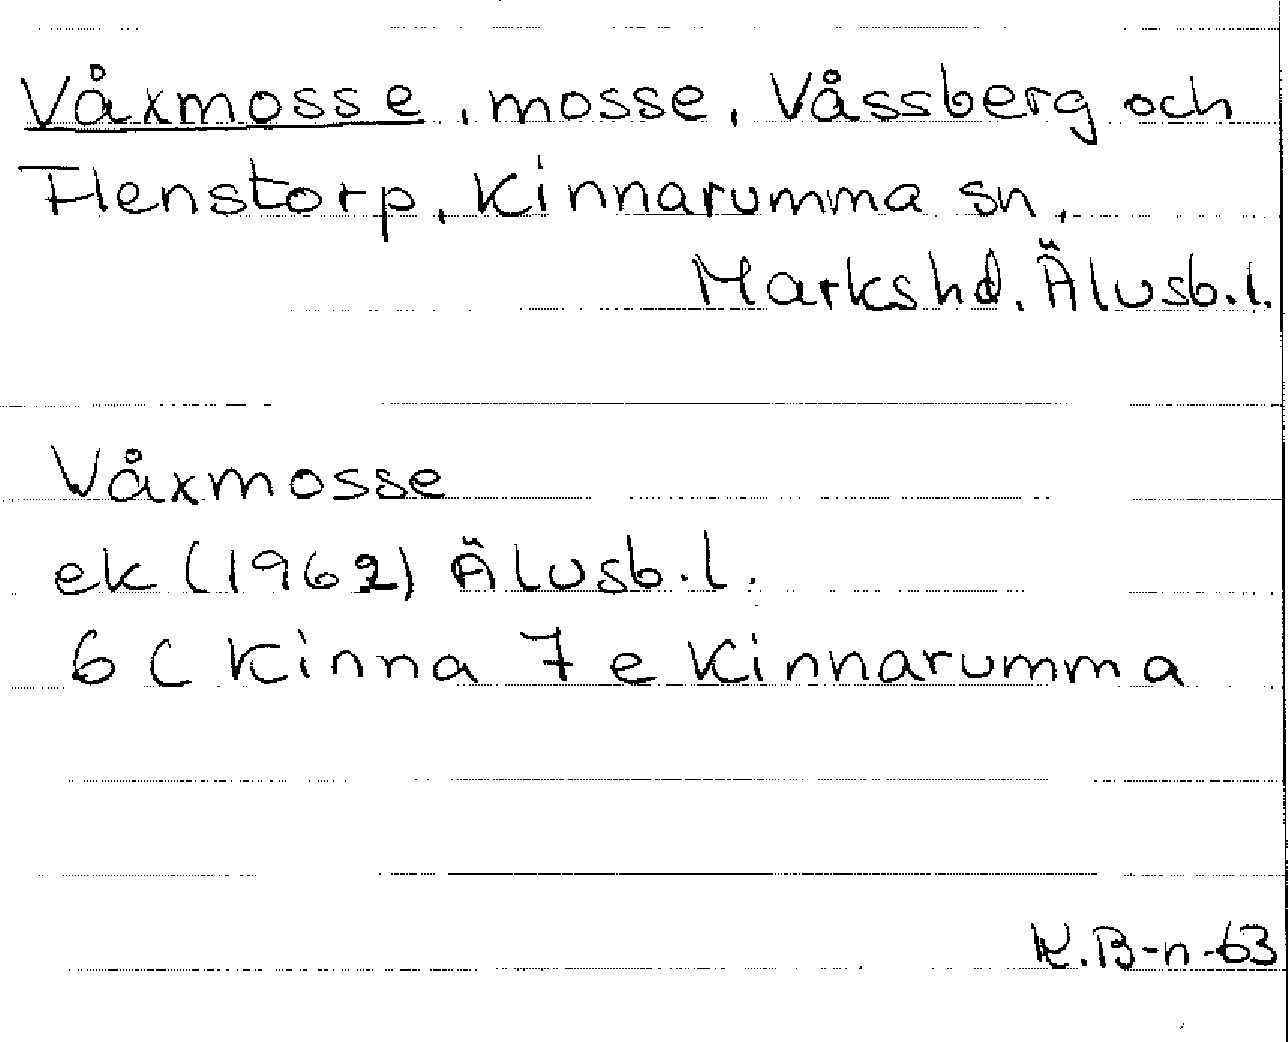 Våxmosse, mosse, Våssberg och
Flenstorp, Kinnarumma sn,
Markshd. Älvsb.l.
Våxmosse
ek (1962) Älvsb.l.
6 C Kinna 7 e Kinnarumma
K.B-n-63